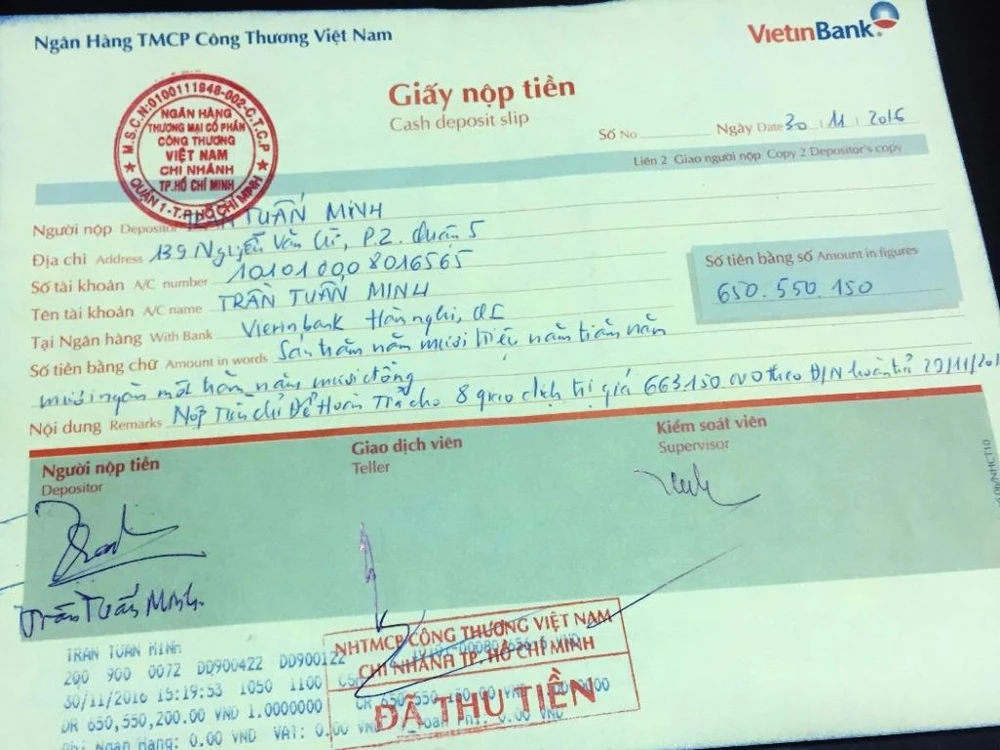 Ngân Hàng TMCP Công Thương Việt Nam
VietinBank
M.S.C.N:0100111948-002-C.T.C.P
NGÂN HÀNG
THƯƠNG MẠI CỔ PHẦN
CÔNG THƯƠNG
VIỆT NAM
CHI NHÁNH
TP.HỒ CHÍ MINH
QUẬN 1-T.P HỒ CHÍ MINH
Giấy nộp tiền
Cash deposit slip
Số No
Ngày Date 30 11 2016
Liên 2 Giao người nộp Copy 2 Depositor's copy
Người nộp Depositor TRẦN TUẤN MINH
Địa chỉ Address 139 Nguyễn Văn Cừ, P.2. Quận 5
Số tài khoản A/C number 101010008016565
Tên tài khoản A/C name TRẦN TUẤN MINH
Tại Ngân hàng With Bank Vietinbank Hàm nghi, Q1
Số tiền bằng số Amount in figures
650.550.150
Số tiền bằng chữ Amount in words Sáu trăm năm mươi triệu năm trăm năm
mươi ngàn một trăm năm mươi đồng
Nội dung Remarks Nộp Tiền chỉ Để Hoàn Trả cho 8 giao dịch trị giá 663150 000 theo Đ/N hoàn trả 29/11/201
Người nộp tiền
Depositor
Giao dịch viên
Teller
Kiểm soát viên
Supervisor
Trần Tuấn Minh.
NHTMCP CÔNG THƯƠNG VIỆT NAM
CHI NHÁNH TP. HỒ CHÍ MINH
ĐÃ THU TIỀN
TRAN TUAN MINH
200 900 0072 DD900422 DD900122
30/11/2016 15:19:53 1050 1100
DR 650,550,200.00 VND 1.0000000
Phi Ngan Hang: 0.00 VND VAT: 0.00 VND